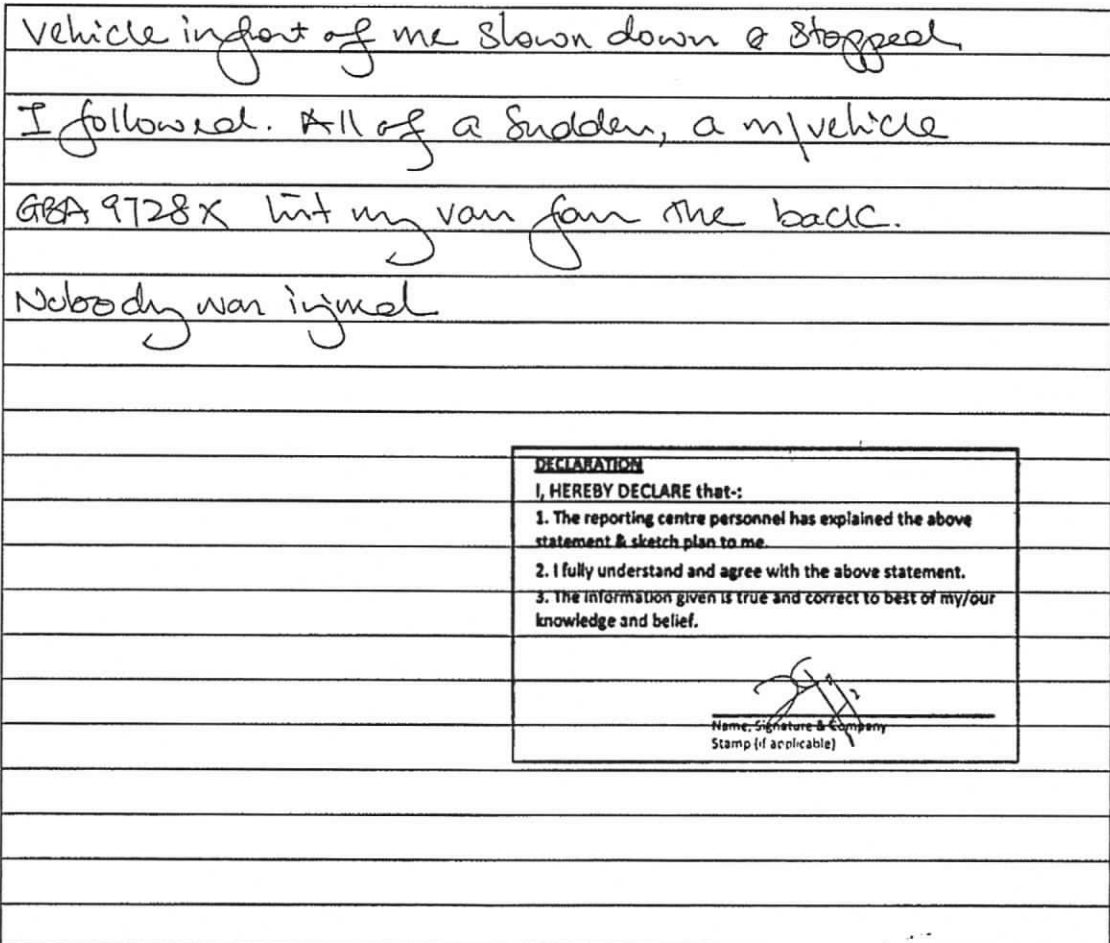 Vehicle infront of me slown down & stopped
I followed. All of a sudden, a m/vehicle
GBA 9728X hit my van from the back.
Nobody was injured
DECLARATION
I, HEREBY DECLARE that-:
1. The reporting centre personnel has explained the above
statement & sketch plan to me.
2. I fully understand and agree with the above statement.
3. The information given is true and correct to best of my/our
knowledge and belief.
Name, Signature & Company
Stamp (if applicable)